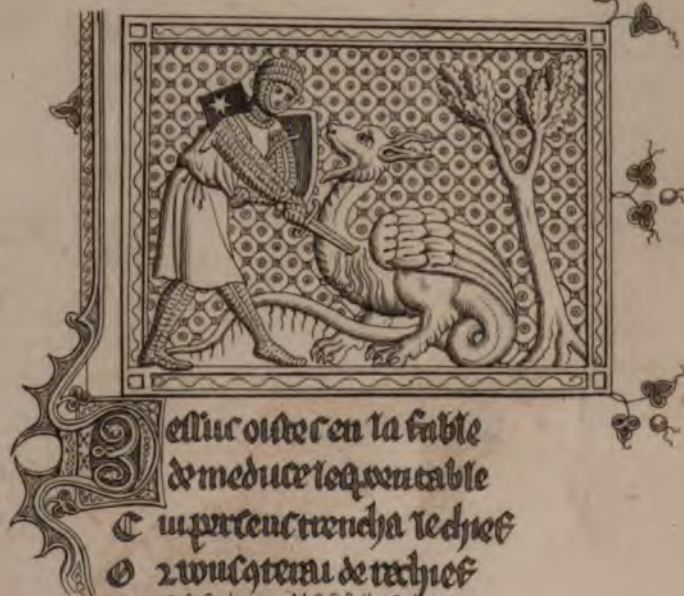 Dessus oistes en la fable
de meduce lespoentable
C ui perseus trencha le chief
O r vous ꝯterai de rechief